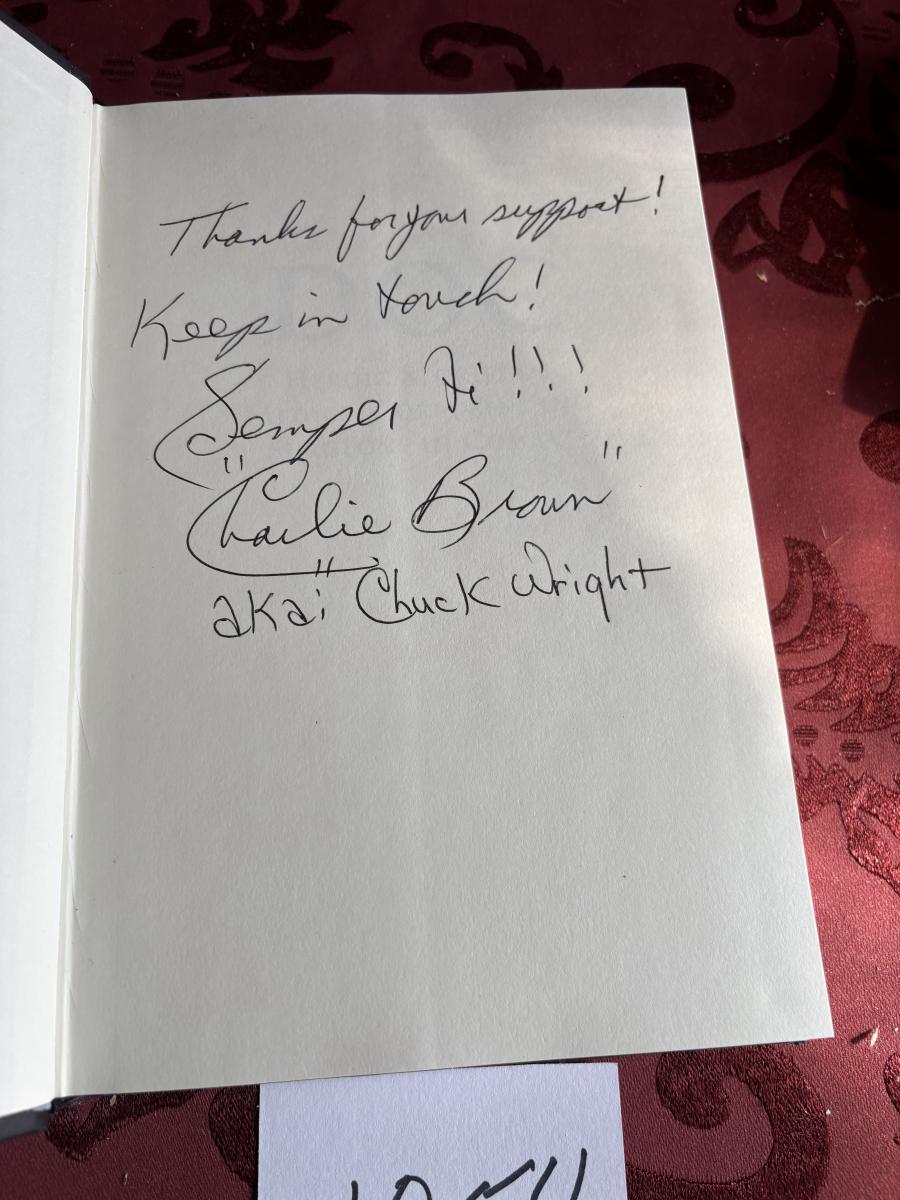 Thanks for your support!
Keep in touch!
Semper Fi!!!
"Charlie Brown"
aka: Chuck Wright